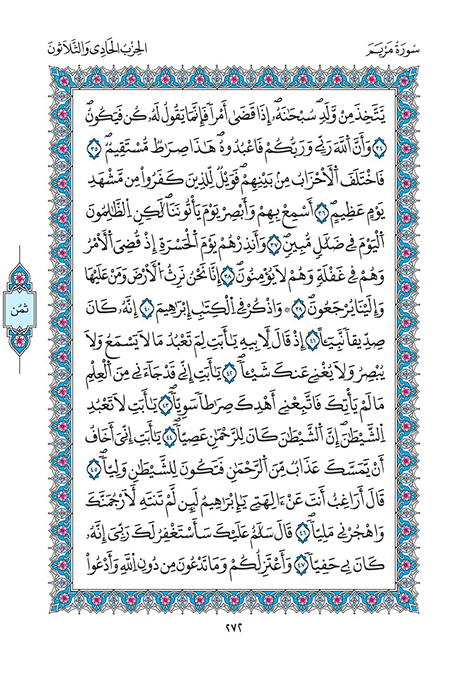 سُورَةُ مَرْيَمَ الحِزْبُ الحَادِي وَالثَّلَاثُونَ
يَّتَّخِذَ مِنْ وَّلَدٍۖ سُبْحَٰنَهُۥٓۖ إِذَا قَضَىٰٓ أَمْراً فَإِنَّمَا يَقُولُ لَهُۥ كُن فَيَكُونُۖ
٣٤ وَأَنَّ اَللَّهَ رَبِّي وَرَبُّكُمْ فَاعْبُدُوهُۖ هَٰذَا صِرَٰطٌ مُّسْتَقِيمٌۖ ٣٥
فَاخْتَلَفَ اَلْأَحْزَابُ مِنۢ بَيْنِهِمْۖ فَوَيْلٌ لِّلَّذِينَ كَفَرُواْ مِن مَّشْهَدِ
يَوْمٍ عَظِيمٍۖ ٣٦ أَسْمِعْ بِهِمْ وَأَبْصِرْ يَوْمَ يَأْتُونَنَاۖ لَٰكِنِ اِلظَّٰلِمُونَ
اَلْيَوْمَ فِي ضَلَٰلٍ مُّبِينٍۖ ٣٧ وَأَنذِرْهُمْ يَوْمَ اَلْحَسْرَةِ إِذْ قُضِيَ اَلْأَمْرُ
وَهُمْ فِي غَفْلَةٍ وَهُمْ لَا يُؤْمِنُونَۖ ٣٨ إِنَّا نَحْنُ نَرِثُ اُلْأَرْضَ وَمَنْ عَلَيْهَا
وَإِلَيْنَا يُرْجَعُونَۖ ٣٩ وَاذْكُرْ فِي اِلْكِتَٰبِ إِبْرَٰهِيمَۖ ٤٠ إِنَّهُۥ كَانَ
صِدِّيقاً نَّبِيٓـٔاًۖ ٤١ إِذْ قَالَ لِأَبِيهِ يَٰٓأَبَتِ لِمَ تَعْبُدُ مَا لَا يَسْمَعُ وَلَا
يُبْصِرُ وَلَا يُغْنِي عَنكَ شَيْـٔاًۖ ٤٢ يَٰٓأَبَتِ إِنِّي قَدْ جَآءَنِي مِنَ اَلْعِلْمِ
مَا لَمْ يَأْتِكَ فَاتَّبِعْنِيٓ أَهْدِكَ صِرَٰطاً سَوِيّاًۖ ٤٣ يَٰٓأَبَتِ لَا تَعْبُدِ
اِلشَّيْطَٰنَۖ إِنَّ اَلشَّيْطَٰنَ كَانَ لِلرَّحْمَٰنِ عَصِيّاًۖ ٤٤ يَٰٓأَبَتِ إِنِّيَ أَخَافُ
أَنْ يَّمَسَّكَ عَذَابٌ مِّنَ اَلرَّحْمَٰنِ فَتَكُونَ لِلشَّيْطَٰنِ وَلِيّاًۖ ٤٥
قَالَ أَرَاغِبٌ أَنتَ عَنْ ءَالِهَتِي يَٰٓإِبْرَٰهِيمُۖ لَئِن لَّمْ تَنتَهِ لَأَرْجُمَنَّكَ
وَاهْجُرْنِي مَلِيّاًۖ ٤٦ قَالَ سَلَٰمٌ عَلَيْكَ سَأَسْتَغْفِرُ لَكَ رَبِّيَ إِنَّهُۥ
كَانَ بِي حَفِيّاًۖ ٤٧ وَأَعْتَزِلُكُمْ وَمَا تَدْعُونَ مِن دُونِ اِللَّهِ وَأَدْعُواْ
ثُمُن
٢٧٢